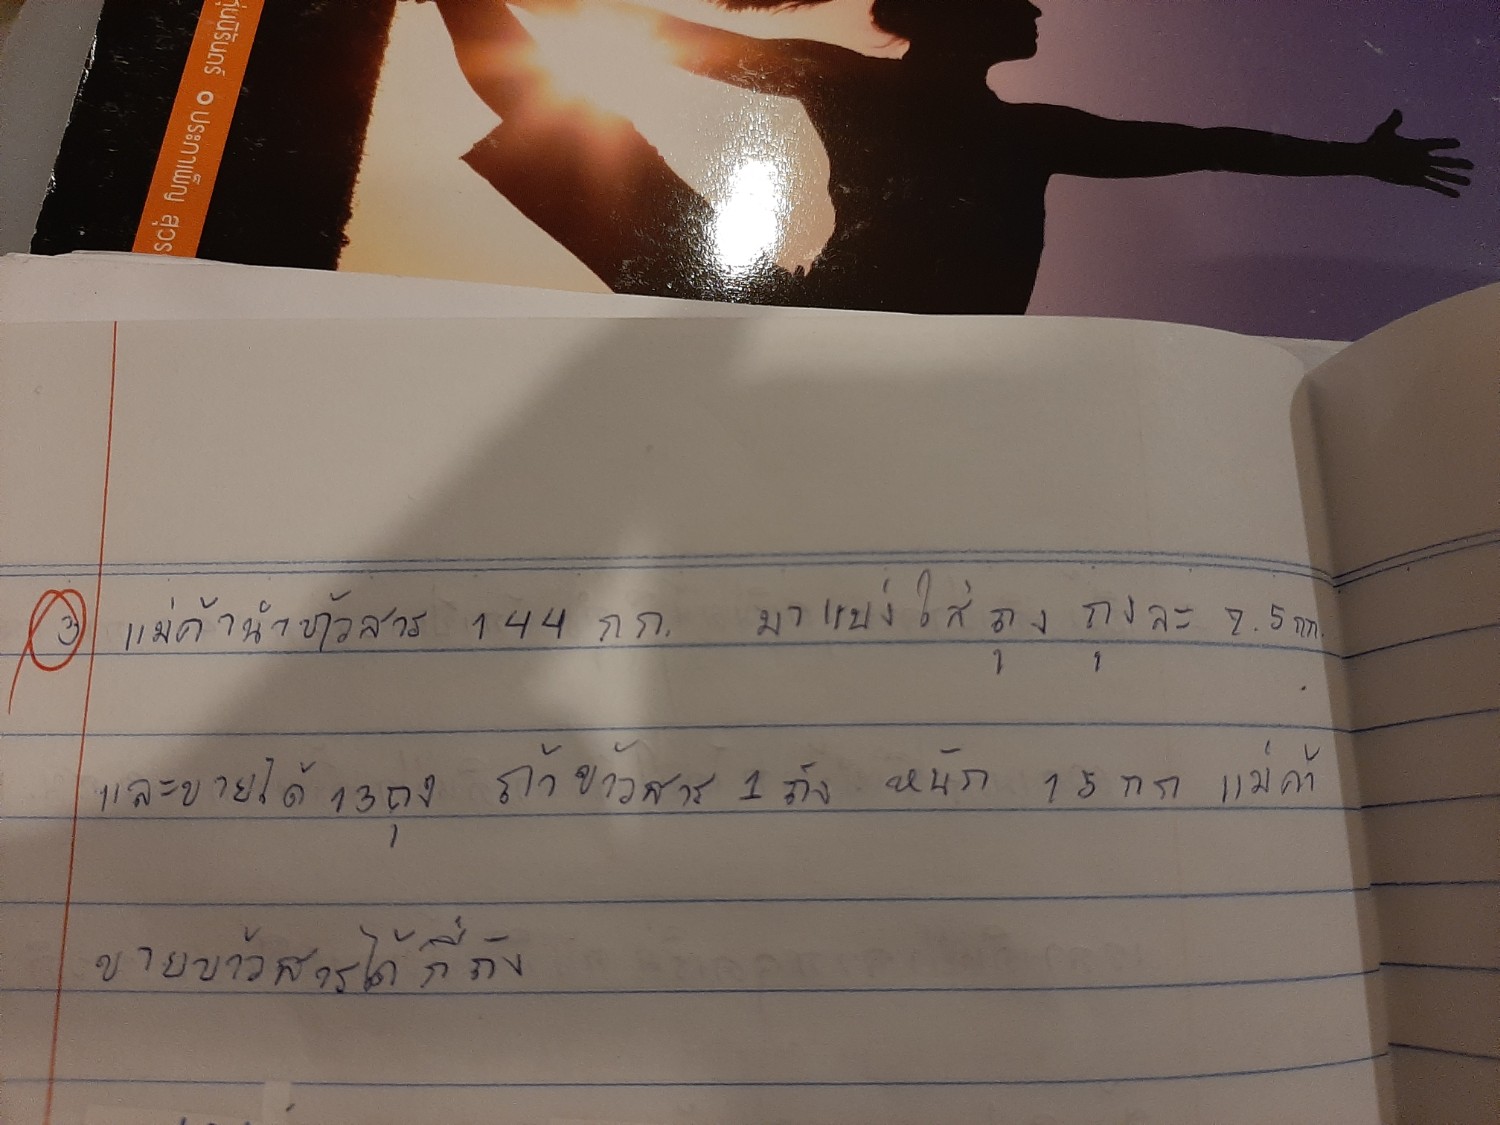 ประกายเพ็ญ สุวร
③ แม่ค้านำข้าวสาร 144 กก. มาแบ่งใส่ถุง ถุงละ 7.5 กก.
และขายได้ 13 ถุง ถ้าข้าวสาร 1 ถัง หนัก 15 กก แม่ค้า
ขายข้าวสารได้กี่ถัง